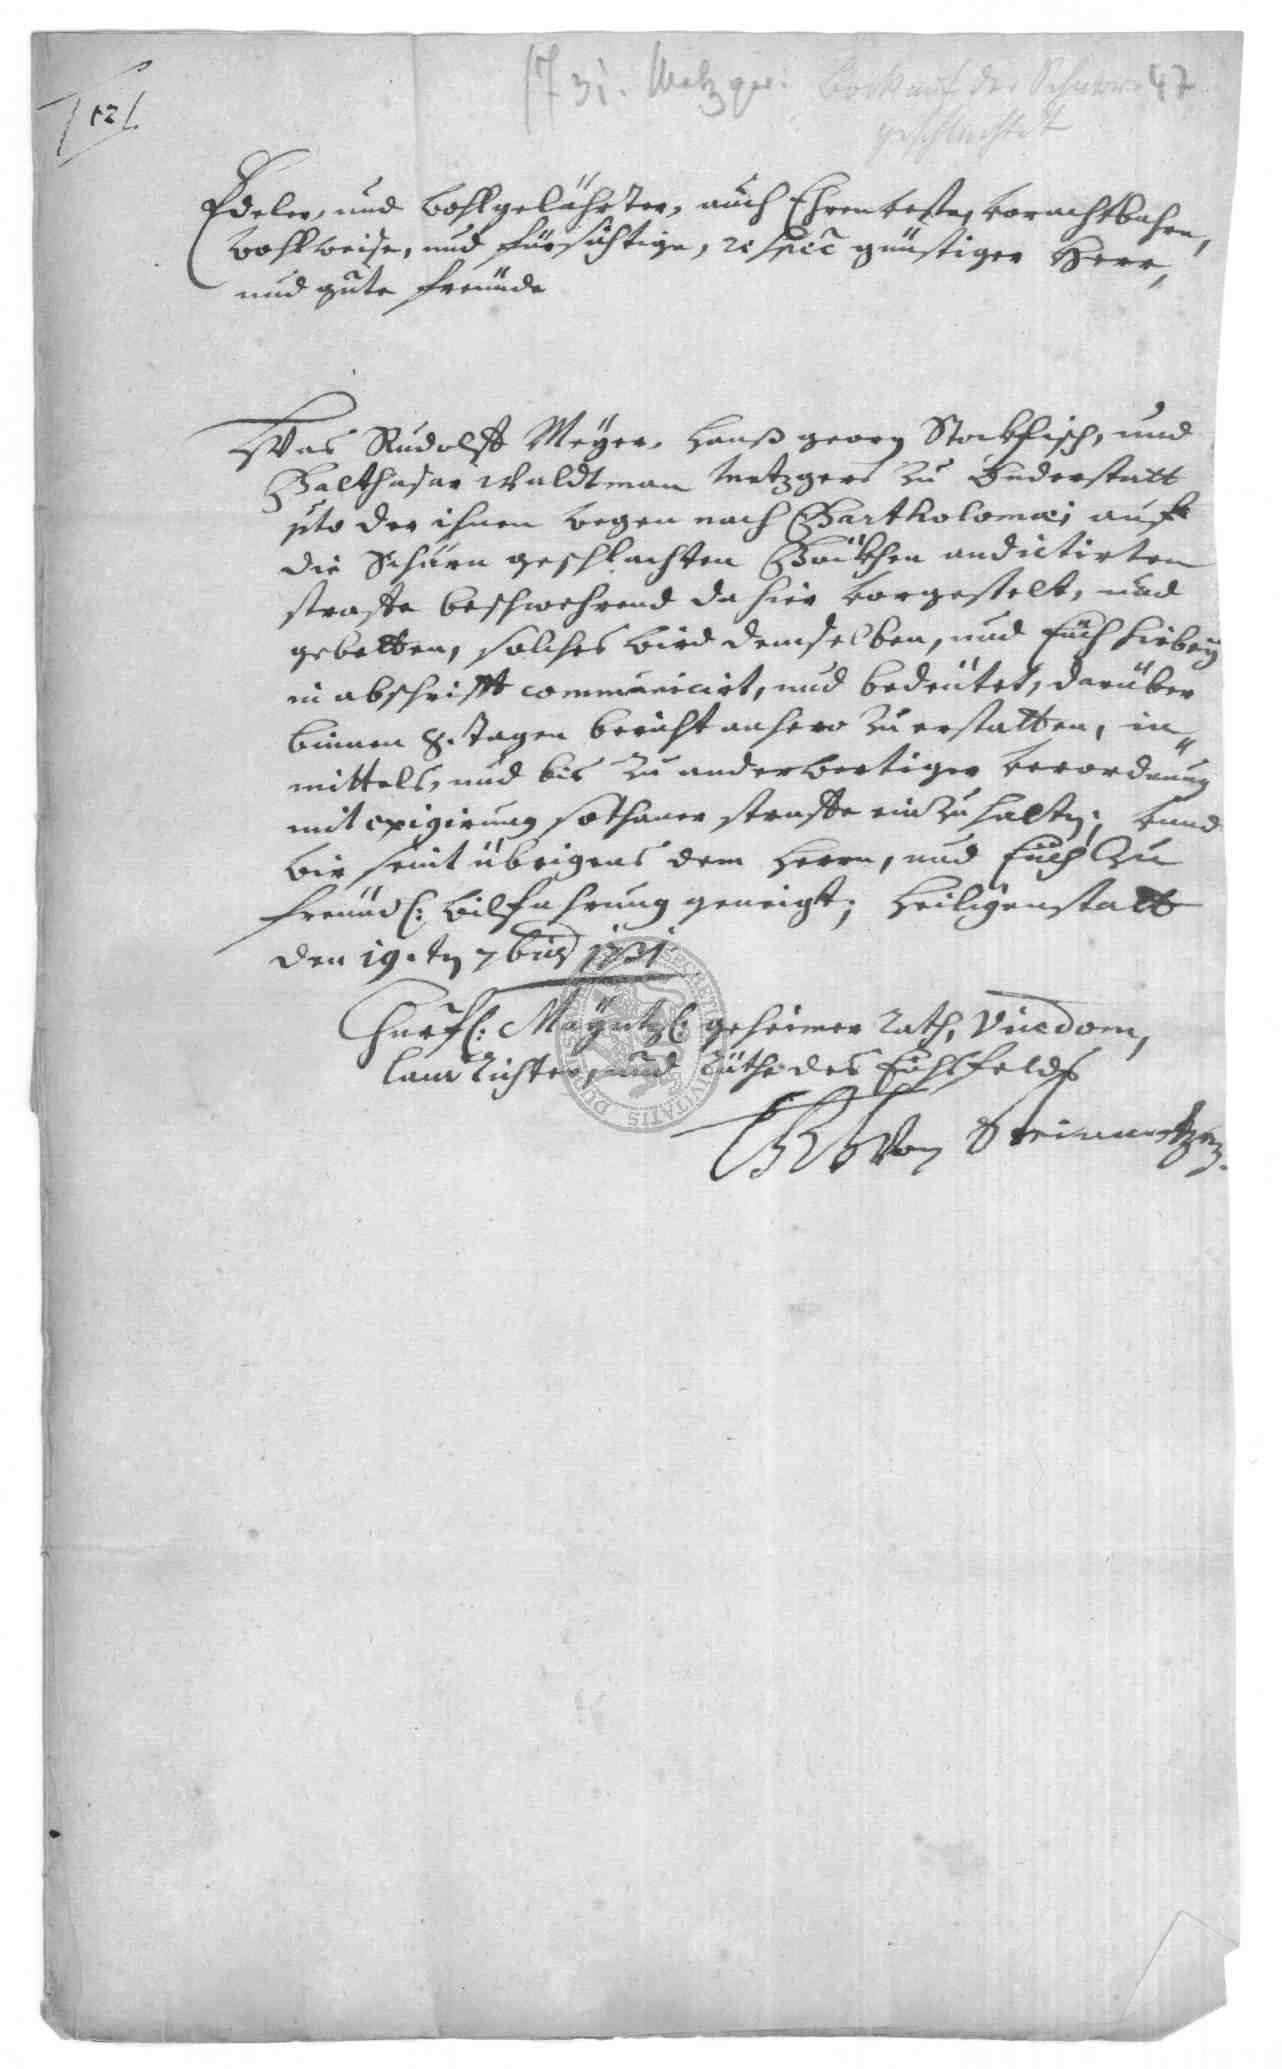 121.
1731. Metzger. Bock auf der Scharre 47
geschlachtet
Edeler, und wohlgelährter, auch Ehrenveste, vorachtbahre,
wohlweise, und fürsichtige, respec günstiger Herr,
und gute freünde
Was Rudolff Meÿer, Hanß georg Stockfisch, und
Balthasar Waldtman Metzgers zu Duderstatt
pto der ihnen wegen nach Bartholomæi auff
die Scharn geschlachten Böckhen andictirten
straffe beschwehrend dahier vorgestelt, und
gebetten, solches wird demselben, und Euch hirbeÿ
in abschrifft communicirt, und bedeütet, darüber
binnen 8. tagen bericht anhero zu erstatten, in
mittels, und bis zu anderwertiger verordnung
mit exigirung sothaner straffe einzuhalten; unnd
wir seint übrigens dem Herrn, und Euch zu
freündl: willfahrung geneigt; Heiligenstatt
den 19.ten 7bris 1731
Churfl: Maÿntzl: geheimer Rath, Vicedom,
landrichter, und Räthe des Eichsfelds
von Steinmetzen